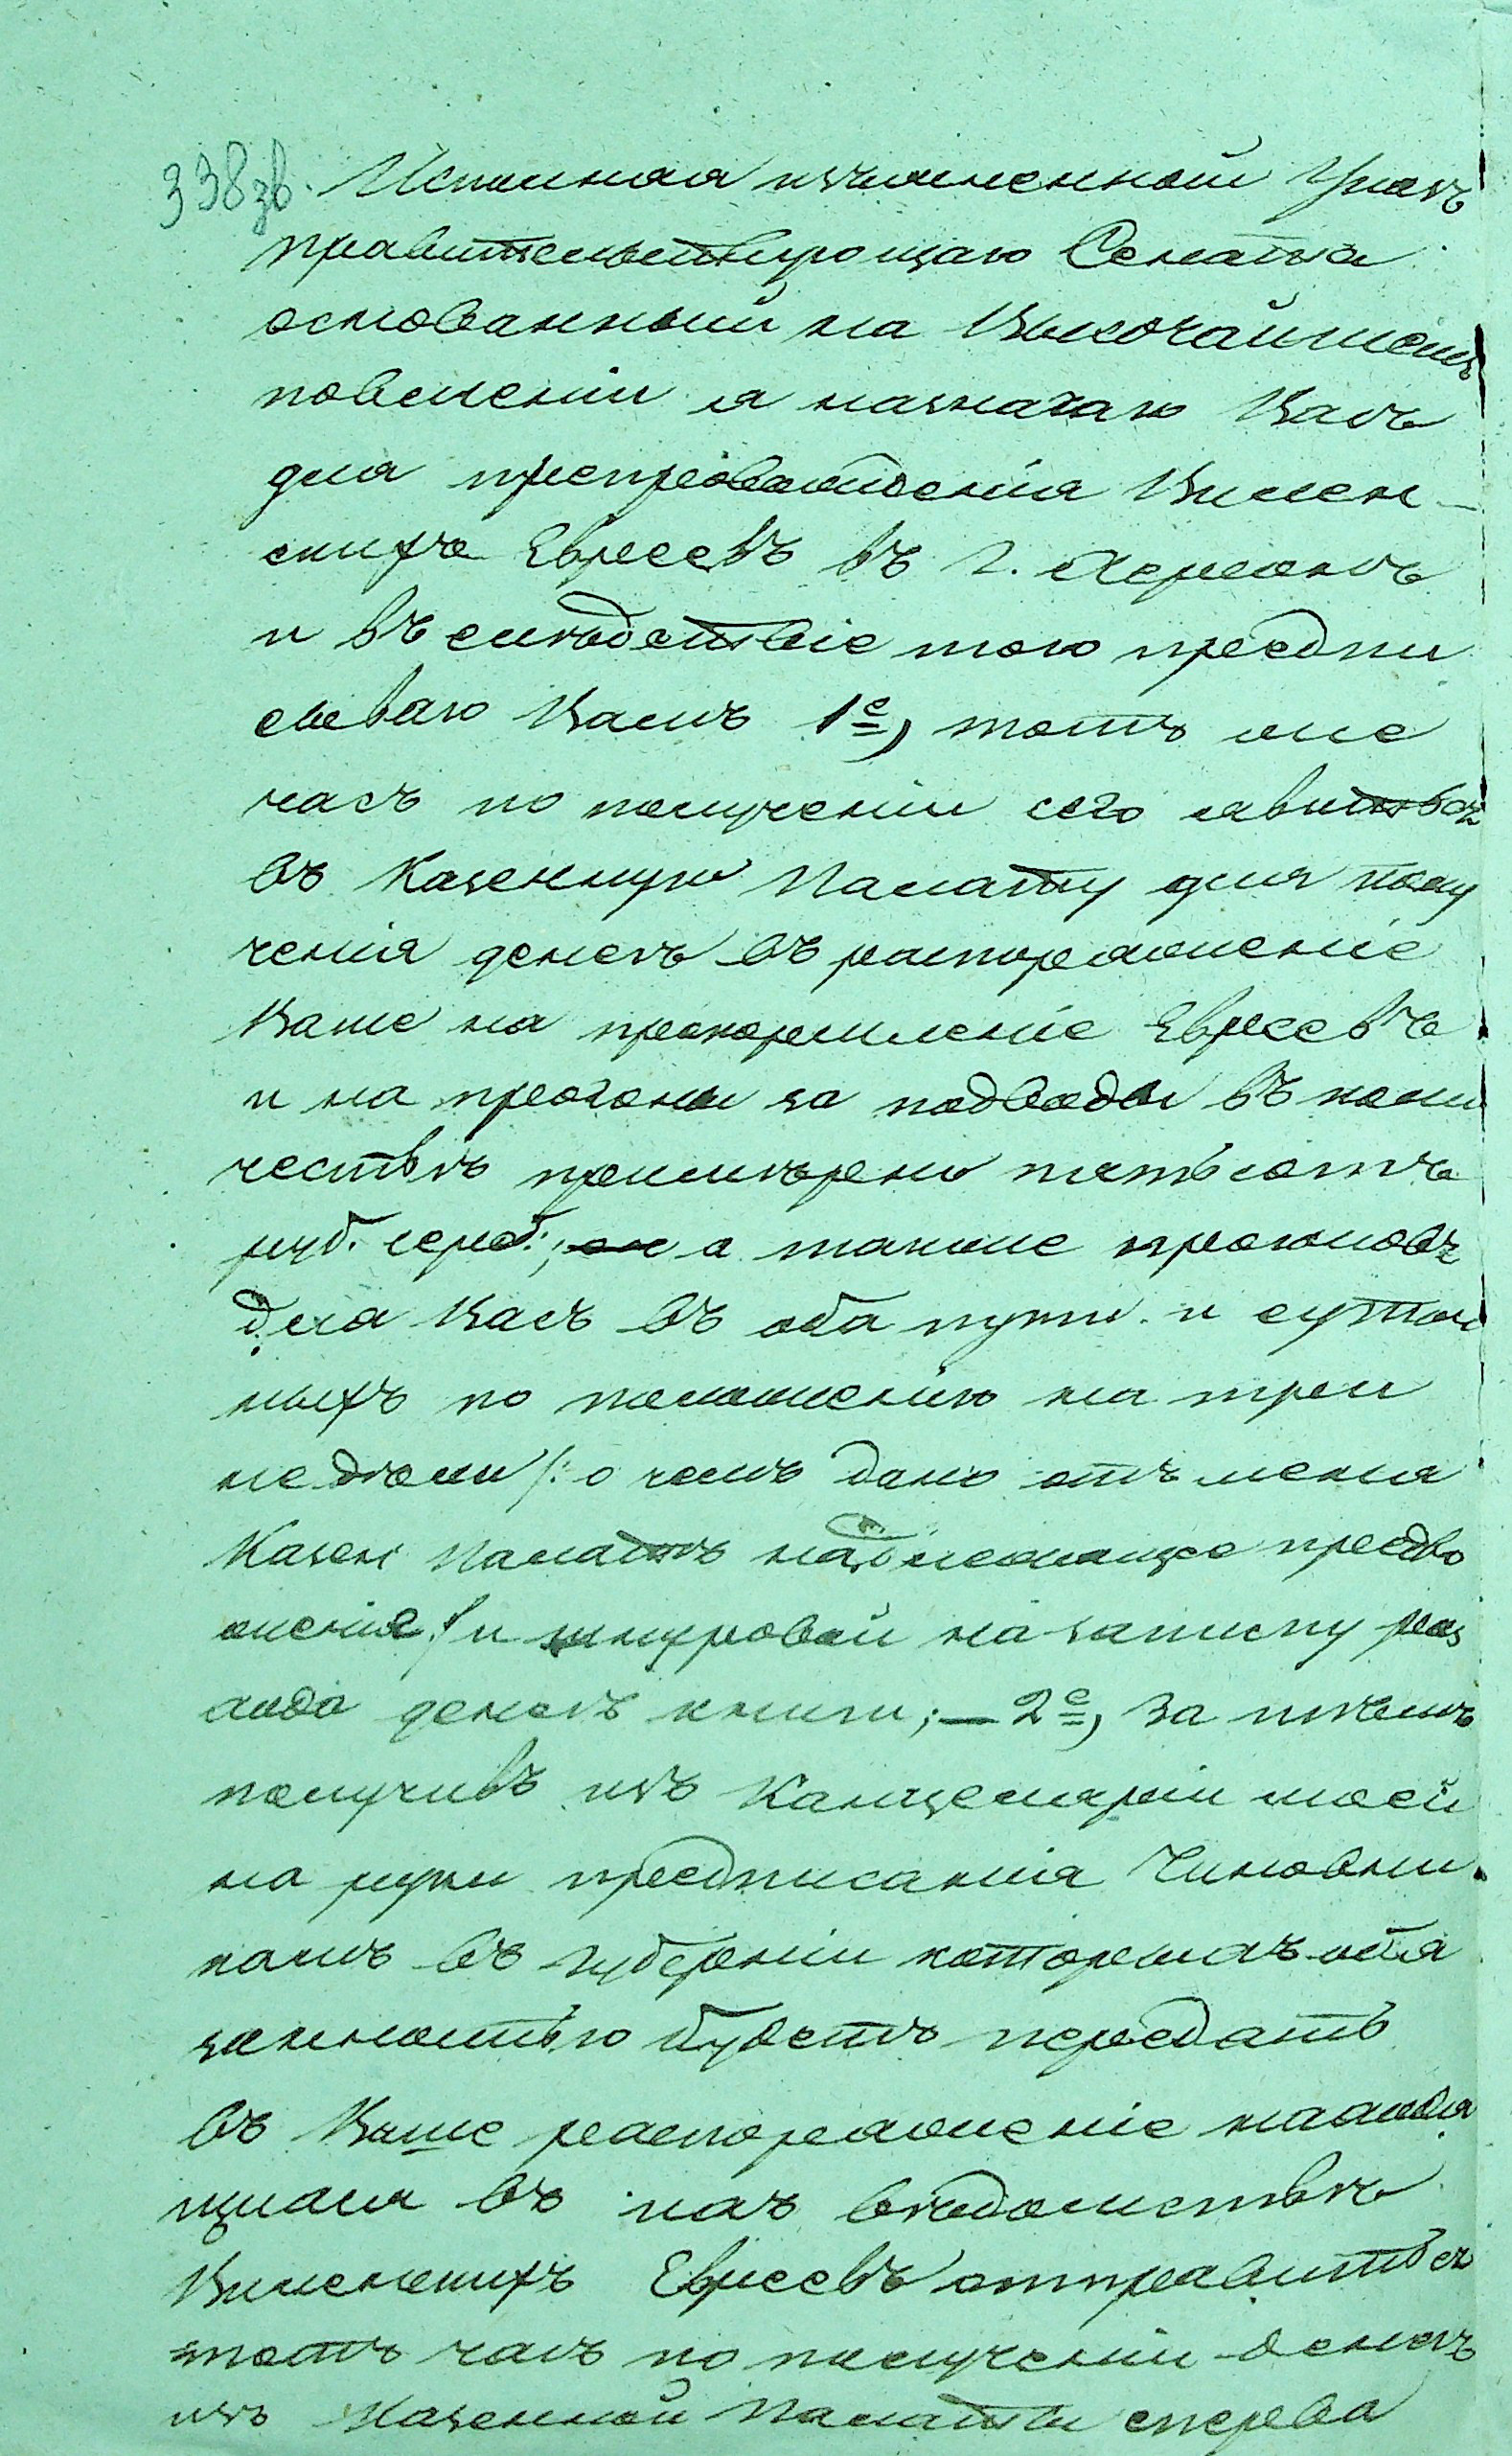 338зв. Исполняя изъясненной Указъ
правительствующаго Сената
основанный на Высочайшемъ
повелении я назначаю Васъ
для препровожденія Вилен-
скихъ Евреевъ въ г. Херсонъ
и въ слѣдствіе того предпи
сываю Вамъ 1е, тотъ же
часъ по полученіи сего явитьсь
въ Казенную Палату для полу
ченія денегъ въ распоряженіе
Ваше на прокормленіе Евреевъ
и на прогоны за подводы въ коли
чествѣ примѣрно пятьсотъ
руб. сереб:, а также прогоновъ
для Васъ въ оба пути и суточ
ныхъ по положенію на три
недѣли /: о чемъ дано отъ меня
Казен Палатѣ надлежащее предло
женіе :/ и шнуровой на записку рас
хода денегъ книги; — 2е, За тѣмъ
получивъ изъ Канцеляріи моей
на руки предписанія Чиновни
камъ въ губерніи которыхъ обя
занностью будетъ передать
въ Ваше распоряженіе находя
щихся въ ихъ вѣдомствѣ
Виленскихъ Евреевъ отправитьсь
тотъ часъ по полученіи денегъ
изъ Казенной Палаты сперва